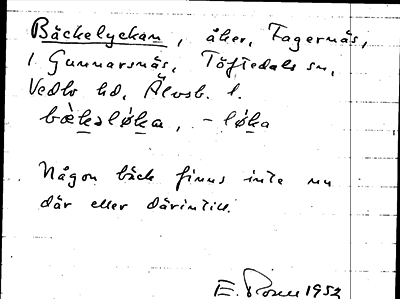 Bäckelyckan, åker, Fagernäs,
i Gunnarsnäs, Töftedals sn,
Vedbo hd, Älvsb. l.
bæ̀kəlø̀ka, - lǿka
Någon bäck finns inte nu
där eller därintill.
E. Rosen 1952